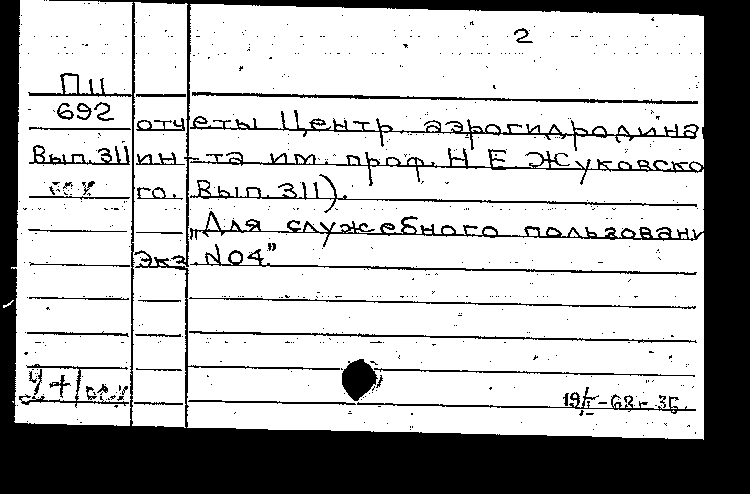 2
П11
692
отчеты Центр. аэрогидродина
Вып. 311 ин-та им. проф. Н. Е. Жуковско
го. Вып. 311).
„Для служебного пользовани
Экз. № 04."
2+1